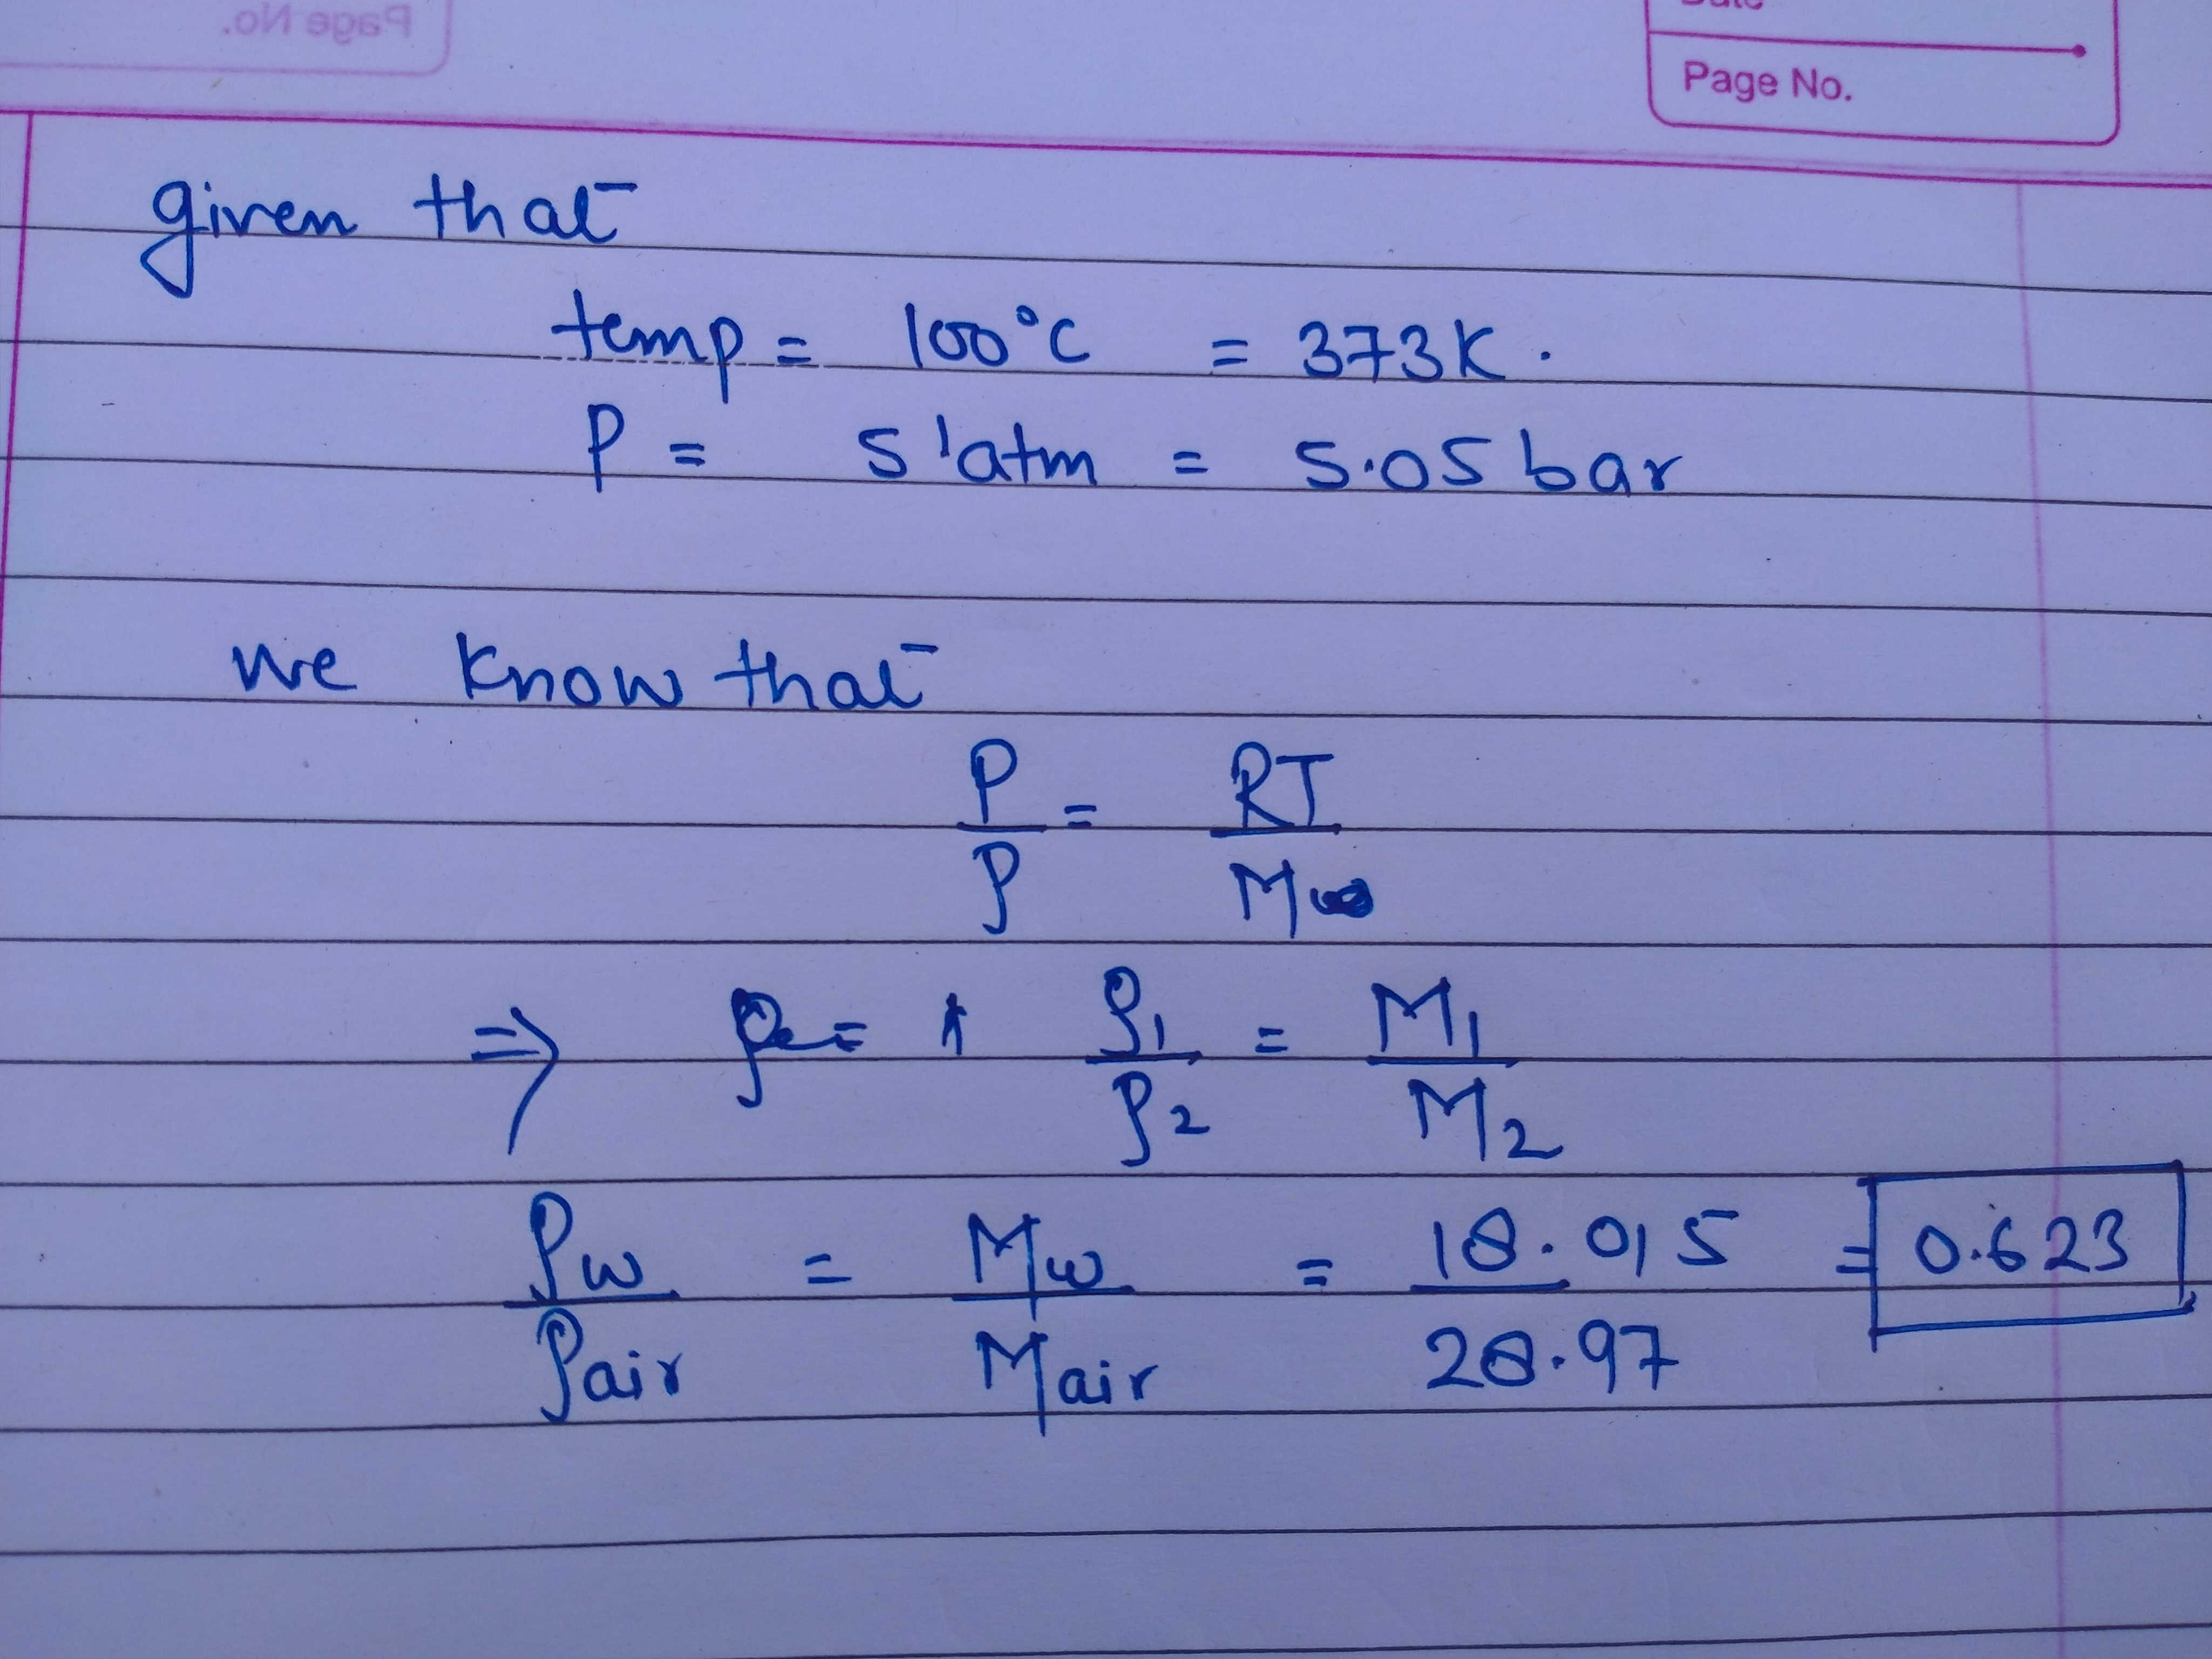 Page No.
Date
Page No.
given that
temp = 100°C = 373K.
P = 5 atm = 5.05 bar
we know that
P/ρ = RT/Mw
⇒ ρ1/ρ2 = M1/M2
ρw/ρair = Mw/Mair = 18.015/28.97 = 0.623